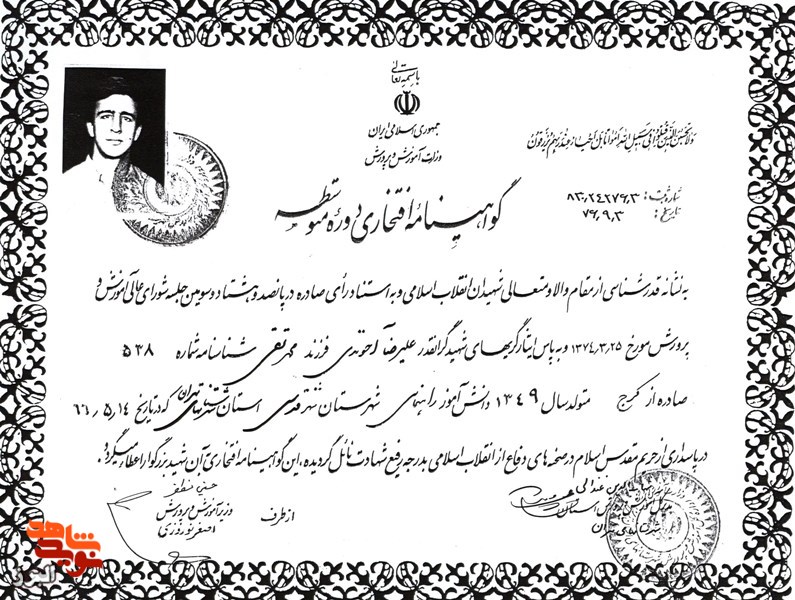 باسمه تعالی
جمهوری اسلامی ایران
وزارت آموزش و پرورش
ولا تحسبن الذین قتلوا فی سبیل الله امواتا بل احیاء عند ربهم یرزقون
شماره ثبت: ۸۳٫۲۴۲۷۶٫۳
تاریخ: ۷۹٫۹٫۳
گواهینامه افتخاری دوره متوسطه
به نشانه قدرشناسی از مقام والا و متعالی شهیدان انقلاب اسلامی و به استناد رأی صادره در پانصد و هشتاد و سومین جلسه شورای عالی آموزش و
پرورش مورخ ۱۳۷۴٫۳٫۲۵ و به پاس ایثارگریهای شهید گرانقدر علیرضا آخوندی فرزند محمدتقی شناسنامه شماره ۵۳۸
صادره از کرج متولد سال ۱۳۴۹ دانش آموز راهنمایی شهرستان شهر قدس استان شهرستانهای تهران که در تاریخ ۶۶٫۵٫۱۴
در پاسداری از حریم مقدس اسلام در صحنه های دفاع از انقلاب اسلامی بدرجه رفیع شهادت نائل گردیده، این گواهینامه افتخاری به آن شهید بزرگوار اعطاء میگردد.
حسین مظفر
وزیر آموزش و پرورش
از طرف
اصغر نوروزی
نوید شاهد
البرز